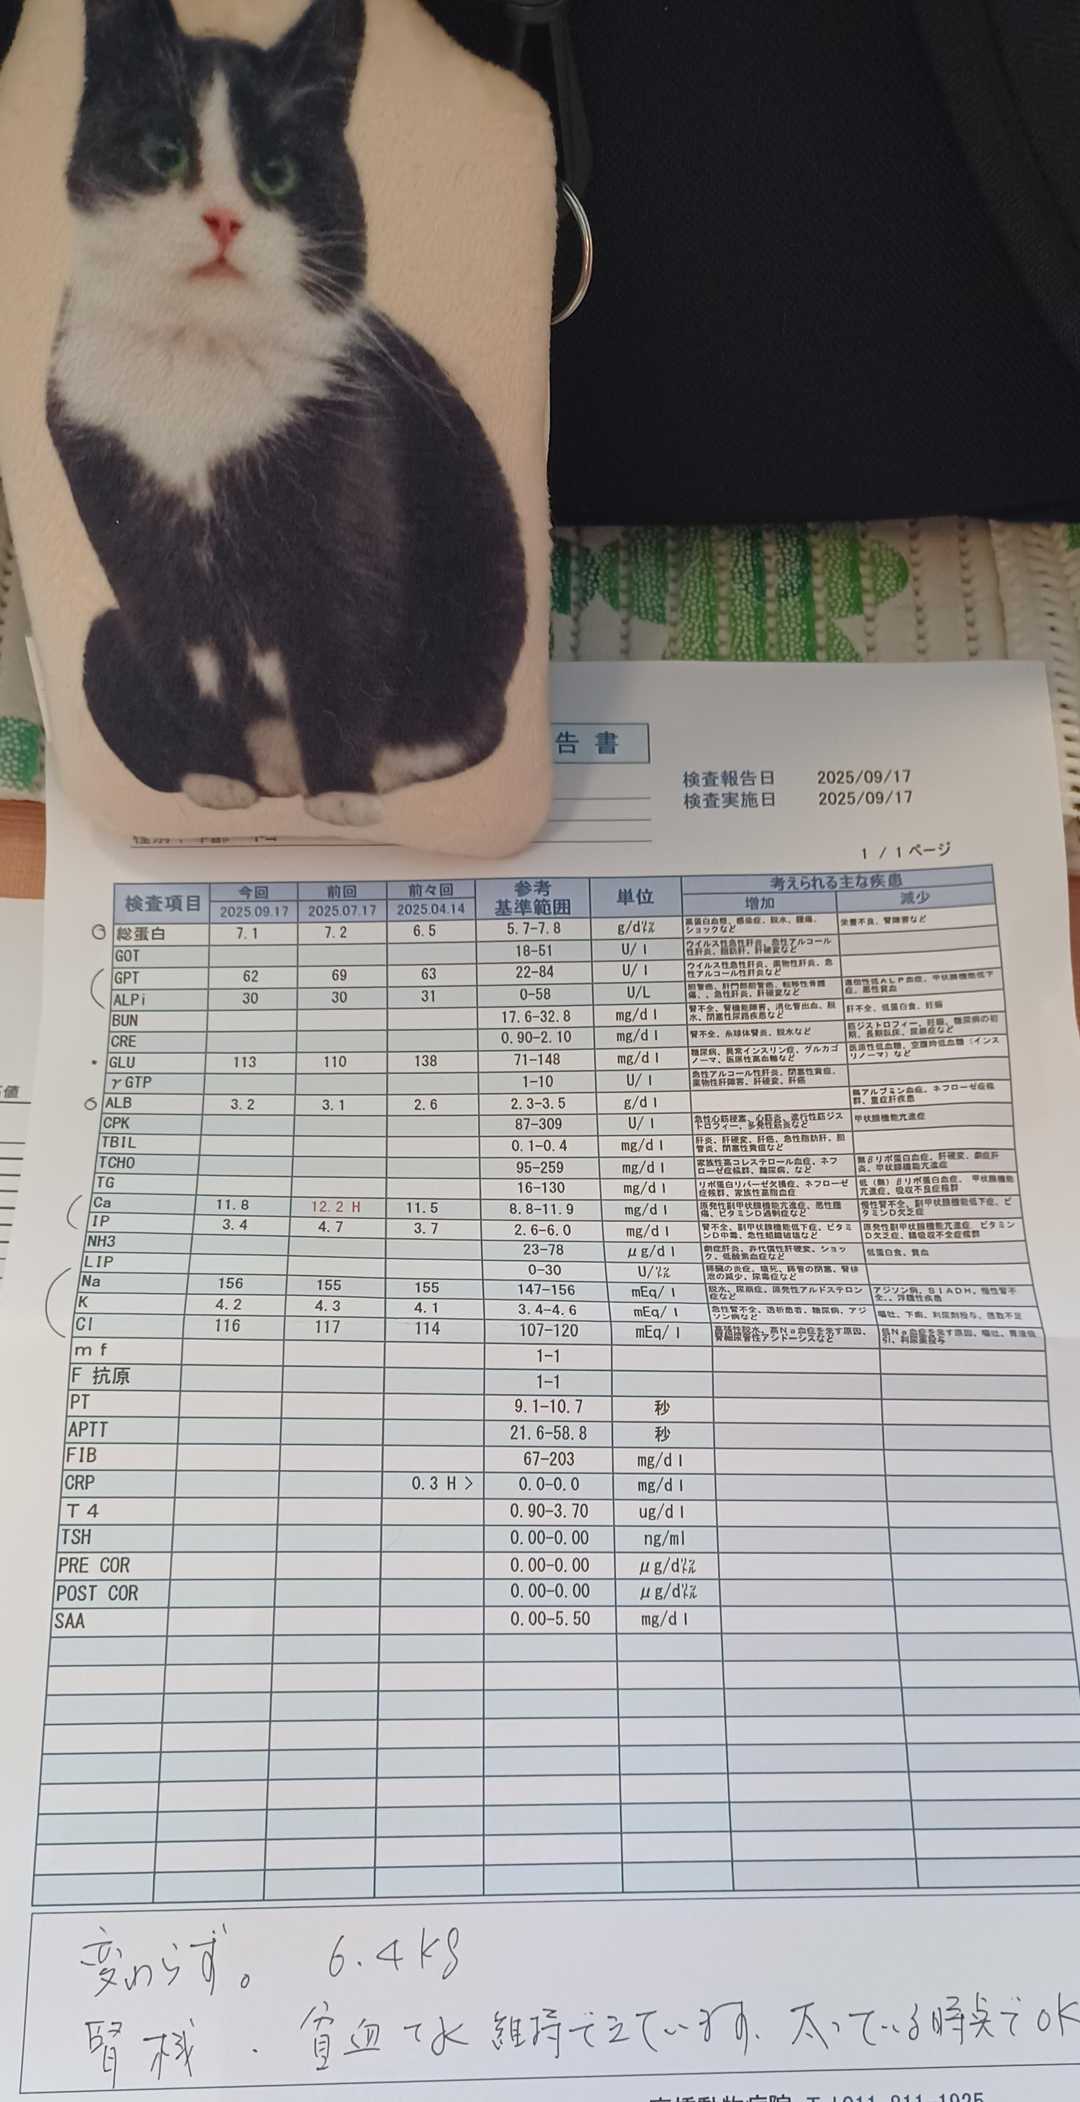 告書
検査報告日 2025/09/17
検査実施日 2025/09/17
1 / 1ページ
検査項目 今回 前回 前々回 参考基準範囲 単位 考えられる主な疾患
2025.09.17 2025.07.17 2025.04.14 増加 減少
総蛋白 7.1 7.2 6.5 5.7-7.8 g/d㍑ 高蛋白血症、感染症、脱水、腫瘍、ショックなど 栄養不良、腎障害など
GOT 18-51 U/l ウイルス性急性肝炎、急性アルコール性肝炎、脂肪肝、肝硬変など
GPT 62 69 63 22-84 U/l ウイルス性急性肝炎、薬物性肝炎、急性アルコール性肝炎など
ALPi 30 30 31 0-58 U/L
BUN 17.6-32.8 mg/dl 肝不全、低蛋白食、妊娠
CRE 0.90-2.10 mg/dl 腎不全、糸球体腎炎、脱水など
GLU 113 110 138 71-148 mg/dl 糖尿病、異常インスリン症、グルカゴノーマ、医原性高血糖など 医原性低血糖、空腹時低血糖（インスリノーマ）など
γGTP 1-10 U/l 急性アルコール性肝炎、閉塞性黄疸、薬物性肝障害、肝硬変、肝癌
ALB 3.2 3.1 2.6 2.3-3.5 g/dl 無アルブミン血症、ネフローゼ症候群、重症肝疾患
CPK 87-309 U/l 急性心筋梗塞、心筋炎、進行性筋ジストロフィー、多発性筋炎など 甲状腺機能亢進症
TBIL 0.1-0.4 mg/dl 肝炎、肝硬変、肝癌、急性脂肪肝、胆管炎、閉塞性黄疸など
TCHO 95-259 mg/dl 家族性高コレステロール血症、ネフローゼ症候群、糖尿病、など 無βリポ蛋白血症、肝硬変、劇症肝炎、甲状腺機能亢進症
TG 16-130 mg/dl リポ蛋白リパーゼ欠損症、ネフローゼ症候群、家族性高脂血症 低（無）βリポ蛋白血症、甲状腺機能亢進症、吸収不良症候群
Ca 11.8 12.2 H 11.5 8.8-11.9 mg/dl 原発性副甲状腺機能亢進症、悪性腫瘍、ビタミンD過剰症など 慢性腎不全、副甲状腺機能低下症、ビタミンD欠乏症
IP 3.4 4.7 3.7 2.6-6.0 mg/dl 腎不全、副甲状腺機能低下症、ビタミンD中毒、急性組織破壊など 原発性副甲状腺機能亢進症 ビタミンD欠乏症、腸吸収不全症候群
NH3 23-78 μg/dl 劇症肝炎、非代償性肝硬変、ショック、低酸素血症など 低蛋白食、貧血
LIP 0-30 U/㍑
Na 156 155 155 147-156 mEq/l 脱水、尿崩症、原発性アルドステロン症など アジソン病、SIADH、慢性腎不全、浮腫性疾患
K 4.2 4.3 4.1 3.4-4.6 mEq/l 急性腎不全、透析患者、糖尿病、アジソン病など 嘔吐、下痢、利尿剤投与、摂取不足
Cl 116 117 114 107-120 mEq/l
mf 1-1
F 抗原 1-1
PT 9.1-10.7 秒
APTT 21.6-58.8 秒
FIB 67-203 mg/dl
CRP 0.3 H > 0.0-0.0 mg/dl
T4 0.90-3.70 ug/dl
TSH 0.00-0.00 ng/ml
PRE COR 0.00-0.00 μg/d㍑
POST COR 0.00-0.00 μg/d㍑
SAA 0.00-5.50 mg/dl
変わらず。 6.4kg
腎機 . 貧血 て" 維持できています、太っている時点でOK